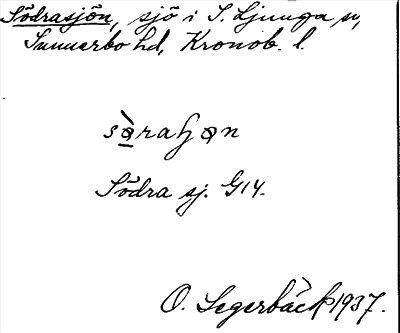 Södrasjön, sjö i S. Ljunga sn,
Sunnerbo hd, Kronob. l.
Södra sj. G14.
O. Segerbäck 1937.